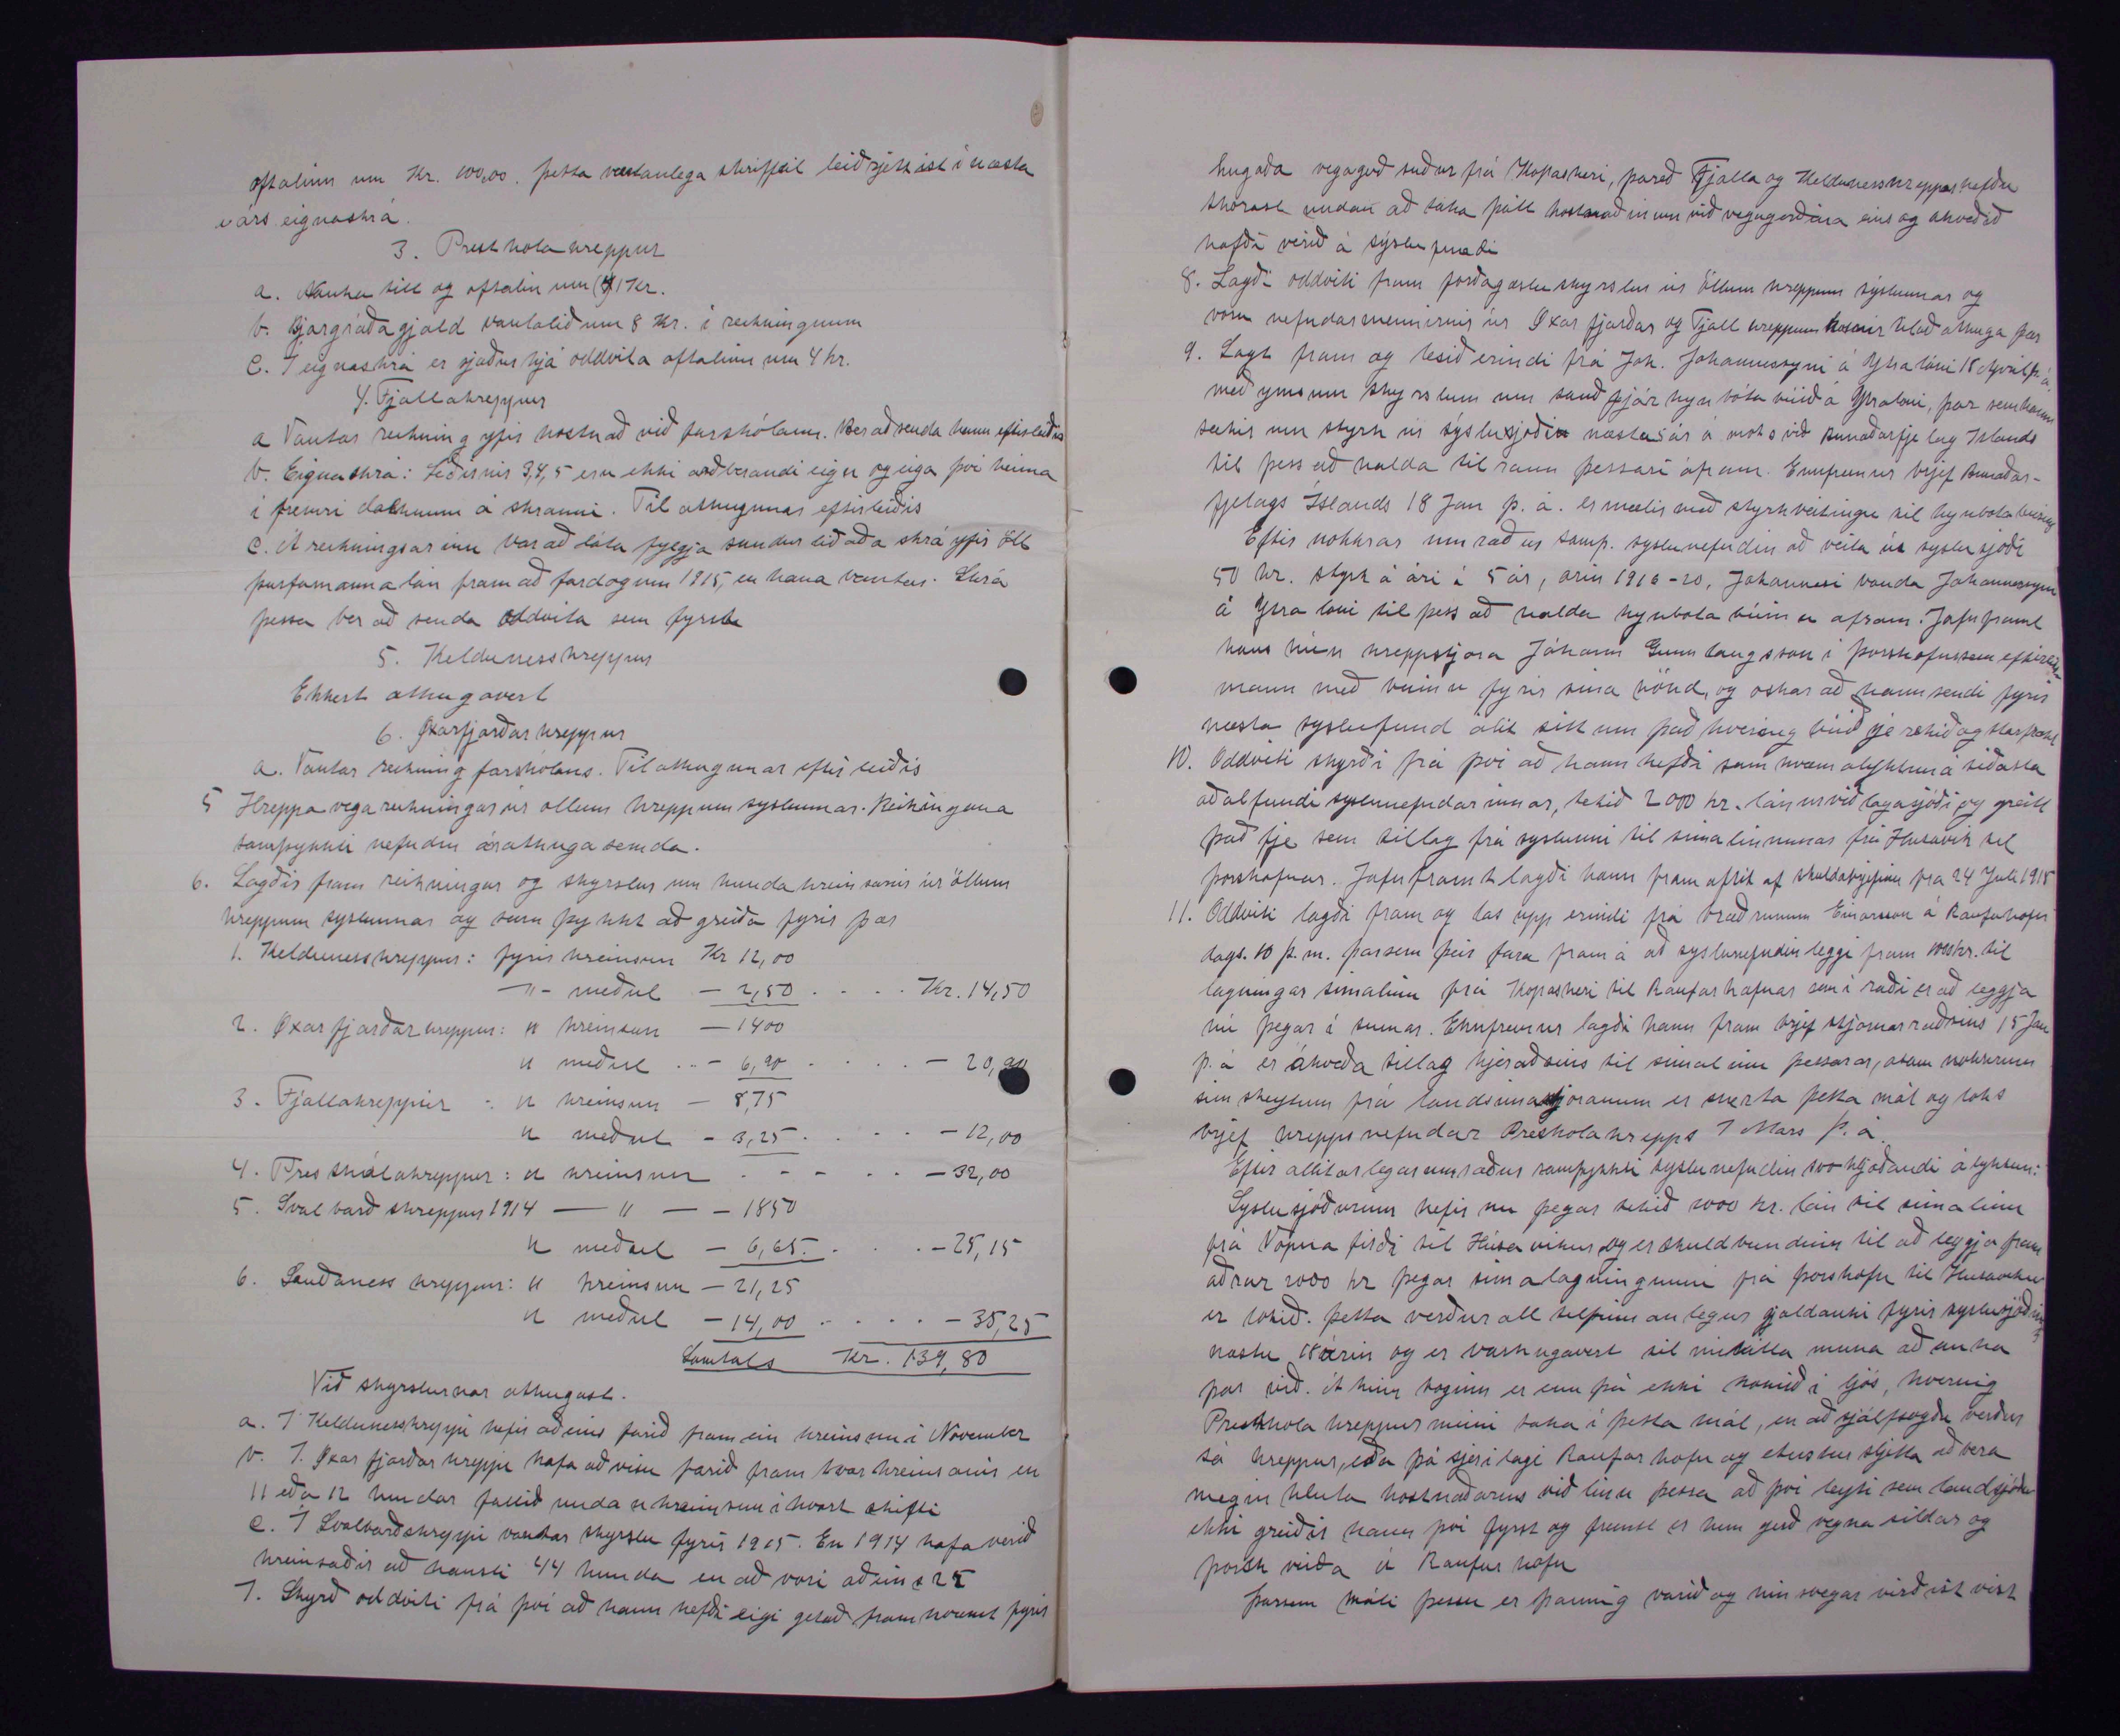 oftalinn um Kr. 100,00. þetta væntanlega skriffeil leiðrjettist í næsta
árs eignaskrá.
3. Presthola hreppur
a. Auka till og oftalin um (4) 1 Kr.
b. Bjargráðagjald vantalið um 8 Kr. í reikningnum
c. I eignaskrá er sjóður hjá oddvita oftalinn um 4 kr.
4. Fjallahreppur
a Vantar reikning yfir kostnað við farskólann. Ber að senda hann eftirleiðis
b. Eignaskrá: Liðirnir 3,4,5 eru ekki arðberandi eign og eiga því heima
í fremri dalkunum á skranni. Til athugunar eftirleiðis
c. At reikningsarinu bar að láta fylgja sundurliðaða skrá yfir öll
þurfamannalán fram að fardögum 1915, en hana vantar. Skrá
þessa ber að senda oddvita sem fyrst
5. Kelduness hreppur
Ekkert athugavert
6. Øxarfjarðarhreppur
a. Vantar reikning farskólans. Til athugunar eftirleiðis
5 Hreppavegareikningar úr ollum hreppum syslunnar. Reikingana
samþykkti nefndin ánathugasemda.
6. Lagðir fram reikningar og skyrslur um hundahreinsanir úr öllum
hreppum syslunnar og sem þykkt að greiða fyrir þær
1. Kelduness hreppur: fyrir hreinsun Kr 12,00
-"- meðul - 2,50 . . . . Kr. 14,50
2. Øxarfjarðarhreppur: " hreinsun — 1400
" meðul .. - 6,90 . . . . - 20,90
3. Fjallahreppur : " hreinsun — 8,75
" meðul - 3,25 . . . . - 12,00
4. Presthólahreppur: " hreinsun . - - . . - 32,00
5. Svalbarðshreppur 1914 — " — - 1850
" meðul - 6,65. . . . - 25,15
6. Sauðaness hreppur: " hreinsun - 21,25
" meðul - 14,00 . . . . - 35,25
Samtals Kr. 139,80
Við skyrslurnar athugast.
a. I Keldunesshreppi hefir aðeins farið fram ein hreinsun í November
b. I. Øxarfjarðarhreppi hafa að visu farið fram tvær hreinsanir en
11 eða 12 hundar fallið undan hreinsun í hvort skifti
c. I Svalbarðshreppi vantar skyrslu fyrir 1915. En 1914 hafa verið
hreinsaðir að hausti 44 hunda en að vori aðeins 25
7. Skyrð oddviti frá því að hann hefði eigi getað framkvæmt fyrir
hugaða vegagerð suður frá Kopaskeri, þareð Fjalla og Kelduness hreppar hefðu
skorast undan að taka þátt kostnaðinum við vegagerðina eins og akveðið
hafði verið á syslufundi
8. Lagði oddviti fram forðagæsluskyrslur úr öllum hreppum syslunnar og
voru nefndarmennirnir úr Øxarfjarðar og Fjallhreppum kosnir til að athuga þær
9. Lagt fram og lesið erindi frá Joh. Johannessyni á Ytralóni 18 Apríl þ.á.
með ymsum skyrslum um sauðfjárkynbóta búið á Ytralóni, þar sem hann
sækir um styrk úr syslusjóði næstu 5 ár á mots við Bunaðarfjelag Islands
til þess að halda tilraun þessari áfram. Ennfremur brjef Bunaðar-
fjelags Íslands 18 Jan þ.á. er mælir með styrkveitingu til kynbotabuisins
Eftir nokkrar umræður samþ. syslunefndin að veita úr syslusjóði
50 kr. styrk á ári í 5 ár, arin 1916-20, Johannesi bonda Johannessyni
á Ytra lóni til þess að halda kynbotabúinu afram. Jafnframt
kaus hún hreppstjora Jóhann Gunnlaugsson í Þorshofn sem eftirlits
mann með búinu fyrir sina hönd, og oskar að hann sendi fyrir
næsta syslufund álit sitt um það hvernig búið sje rekið og starfrækt
10. Oddviti skyrði frá því að hann hefði samkvæm alyktun á siðasta
aðalfundi syslunefndarinnar, tekið 2000 kr. lán úr viðlagasjóði og greitt
það fje sem tillag frá syslunni til simalinunnar frá Husavik til
Þorshafnar. Jafnframt lagði hann fram afrit af skuldabrjefinu fra 24 Juli 1915
11. Oddviti lagði fram og las upp erindi frá bræðrunum Einarsson á Raufarhofn
dags. 10 þ.m. þar sem þeir fara fram á að syslunefndin leggi fram 1000 kr. til
lagningar simalinu frá Kopaskeri til Raufarhafnar sem í ráði er að leggja
nú þegar í sumar. Ennfremur lagði hann fram brjef stjornarraðsins 15 Jan
þ.á er ákveða tillag hjeraðsins til simalinu þessarar, asamt nokkrum
simskeytum frá landsimastjoranum er snerta þetta mál og loks
brjef hreppsnefndar Presthola hrepps 7 Mars þ.á.
Eftir allitarlegar umræður samþykkti syslunefndin svohljóðandi ályktun:
Syslusjóðurinn hefir nu þegar tekið 2000 kr. lán til simalinu
frá Vopnafirði til Húsavikur, og er skuldbundinn til að leggja fram
aðrar 2000 kr þegar simalagningunni frá Þorshöfn til Husavikur
er lokið. þetta verður all tilfinnanlegur gjaldauki fyrir syslusjóðinn
næstu 18 árin og er varhugavert til mikilla muna að auka
þar við. At hinu loginu er enn þá ekki komið í ljós, hvernig
Presthola hreppur muni taka í þetta mál, en að sjálfsögðu verður
sá hreppur, eða þá sjerilagi Raufarhofn og Melrakka sljetta að bera
megin hluta kostnaðarins við linu þessa að því leyti sem landssjóður
ekki greiðir hann því fyrst og fremst er hun gerð vegna sildar og
þorskveiða á Raufarhofn
Þarsem máli þessu er þannig varið og hins vegar virðist vist